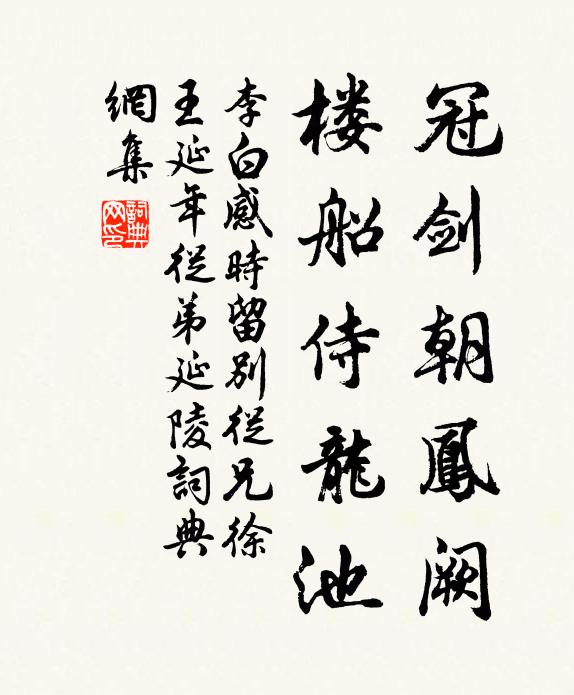 冠剑朝鳳阙
楼船侍龍池
李白感時留别從兄徐
王延年從弟延陵詞典
網集
詞典网印